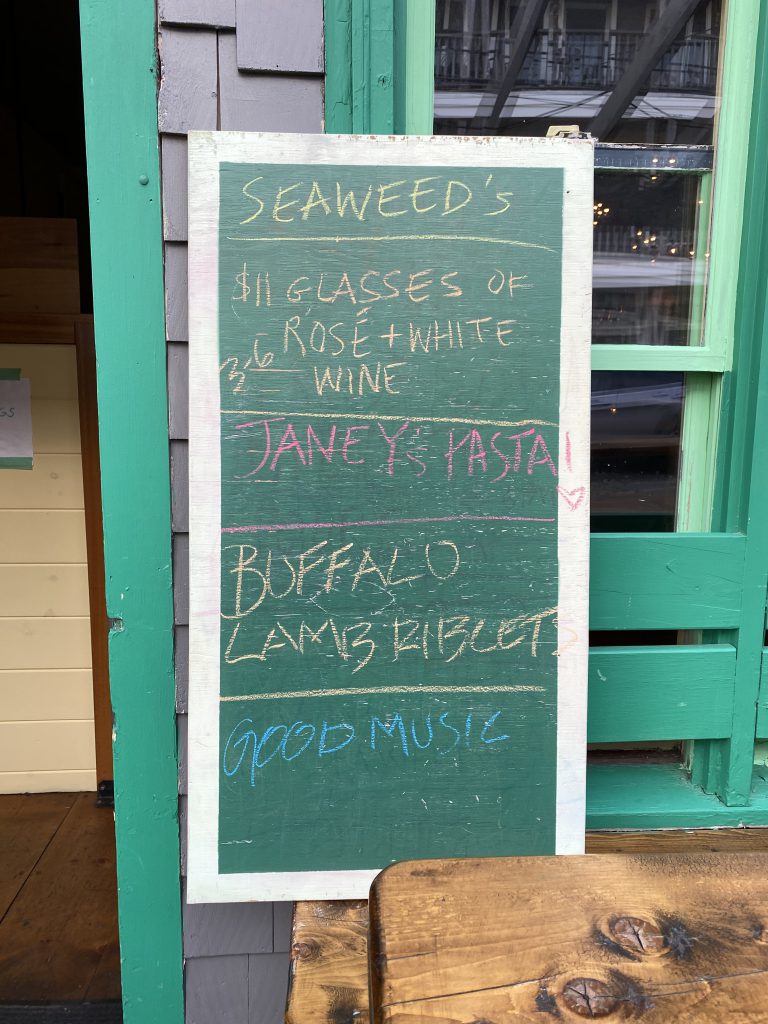 SEAWEED's
$11 GLASSES OF
ROSÉ + WHITE
3-6 WINE
JANEY's PASTA!
BUFFALO
LAMB RIBLETS
GOOD MUSIC
GS